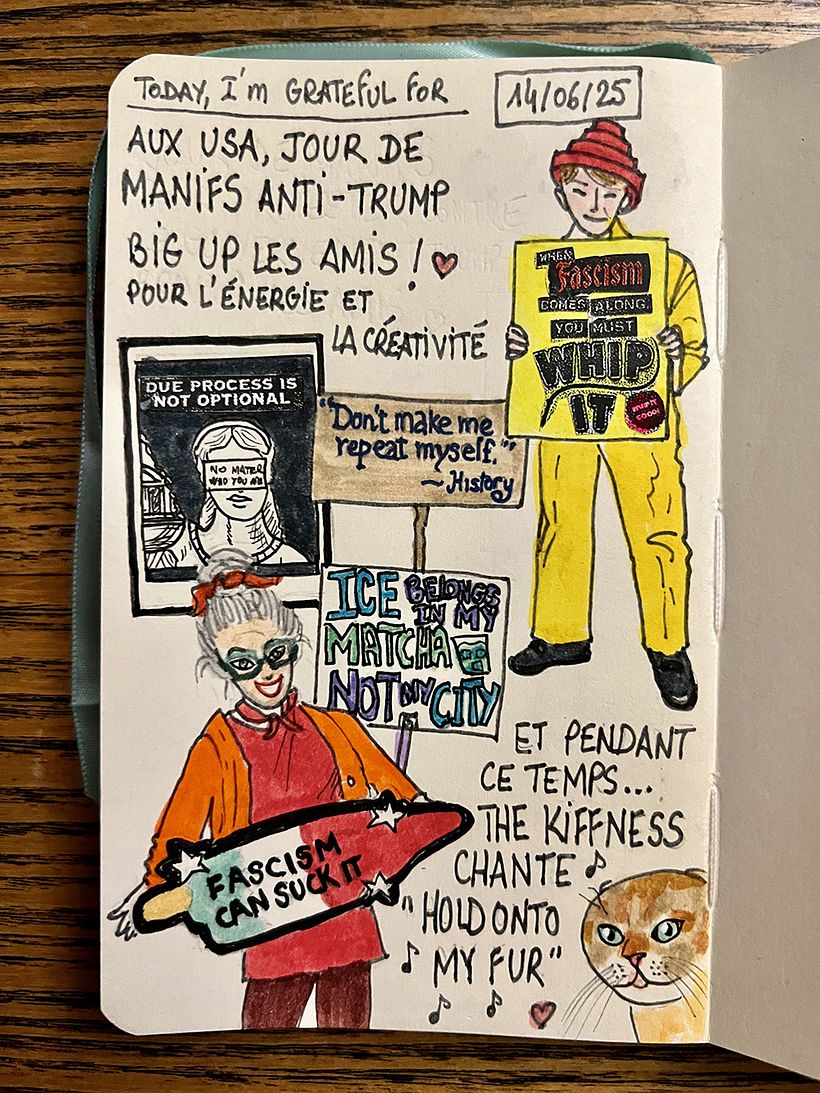 TODAY, I'm GRATEFUL FOR
14/06/25
AUX USA, JOUR DE
MANIFS ANTI-TRUMP
BIG UP LES AMIS !
POUR L'ÉNERGIE ET
LA CRÉATIVITÉ
WHEN
Fascism
COMES ALONG,
YOU MUST
WHIP
IT
DUE PROCESS IS
NOT OPTIONAL
NO MATER
WHO YOU ARE
"Don't make me
repeat myself."
~ History
ICE BELONGS
IN MY
MATCHA
NOT MY CITY
FASCISM
CAN SUCK IT
ET PENDANT
CE TEMPS...
THE KIFFNESS
CHANTE
"HOLD ONTO
MY FUR"